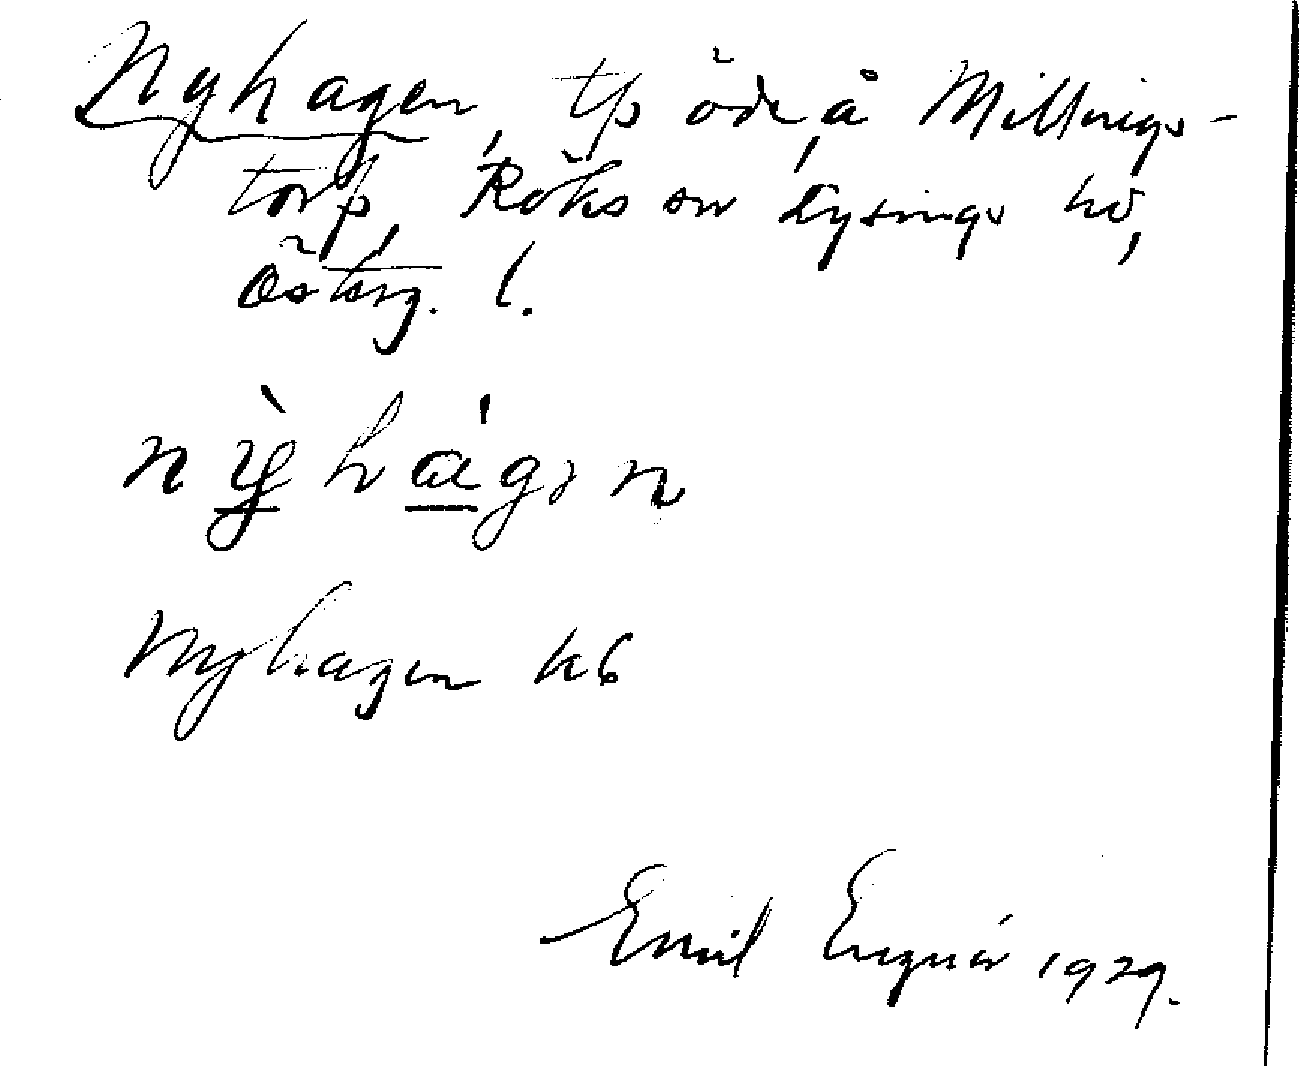 Nyhagen, tp öde, å Millings-
torp, Röks sn Lysings hd,
Österg. l.
nỳhágən
Nyhagen kb
Emil Engnér 1929.